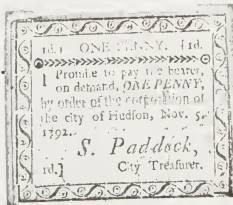 1d.] ONE PENNY. [1d.
I Promise to pay the bearer,
on demand, ONE PENNY,
by order of the corporation of
the city of Hudson, Nov. 5,
1792.
S. Paddock,
1d.] City Treasurer.